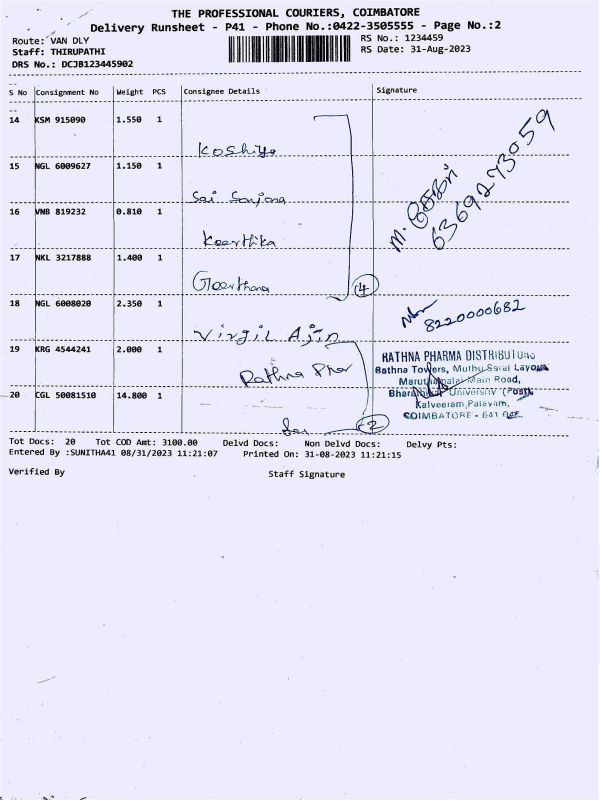 THE PROFESSIONAL COURIERS, COIMBATORE
Delivery Runsheet - P41 - Phone No.:0422-3505555 - Page No.:2
Route: VAN DLY
Staff: THIRUPATHI
DRS No.: DCJB123445902
RS No.: 1234459
RS Date: 31-Aug-2023
S No Consignment No Weight PCS Consignee Details Signature
14 KSM 915090 1.550 1
15 NGL 6009627 1.150 1 Sai Sanjana
16 VNB 819232 0.810 1 Keerthika
17 NKL 3217888 1.400 1 Geerthana
4
6369273059
18 NGL 6008020 2.350 1 Virgil Ajin
8220000682
19 KRG 4544241 2.000 1 Rathna Phar
20 CGL 50081510 14.800 1
2
RATHNA PHARMA DISTRIBUTORS
Rathna Towers, Muthu Saral Layout
Maruthamalai Main Road,
Bharathiar University (Post),
Kalveeram Palayam,
COIMBATORE - 641
Tot Docs: 20 Tot COD Amt: 3100.00 Delvd Docs: Non Delvd Docs: Delvy Pts:
Entered By :SUNITHA41 08/31/2023 11:21:07 Printed On: 31-08-2023 11:21:15
Verified By Staff Signature